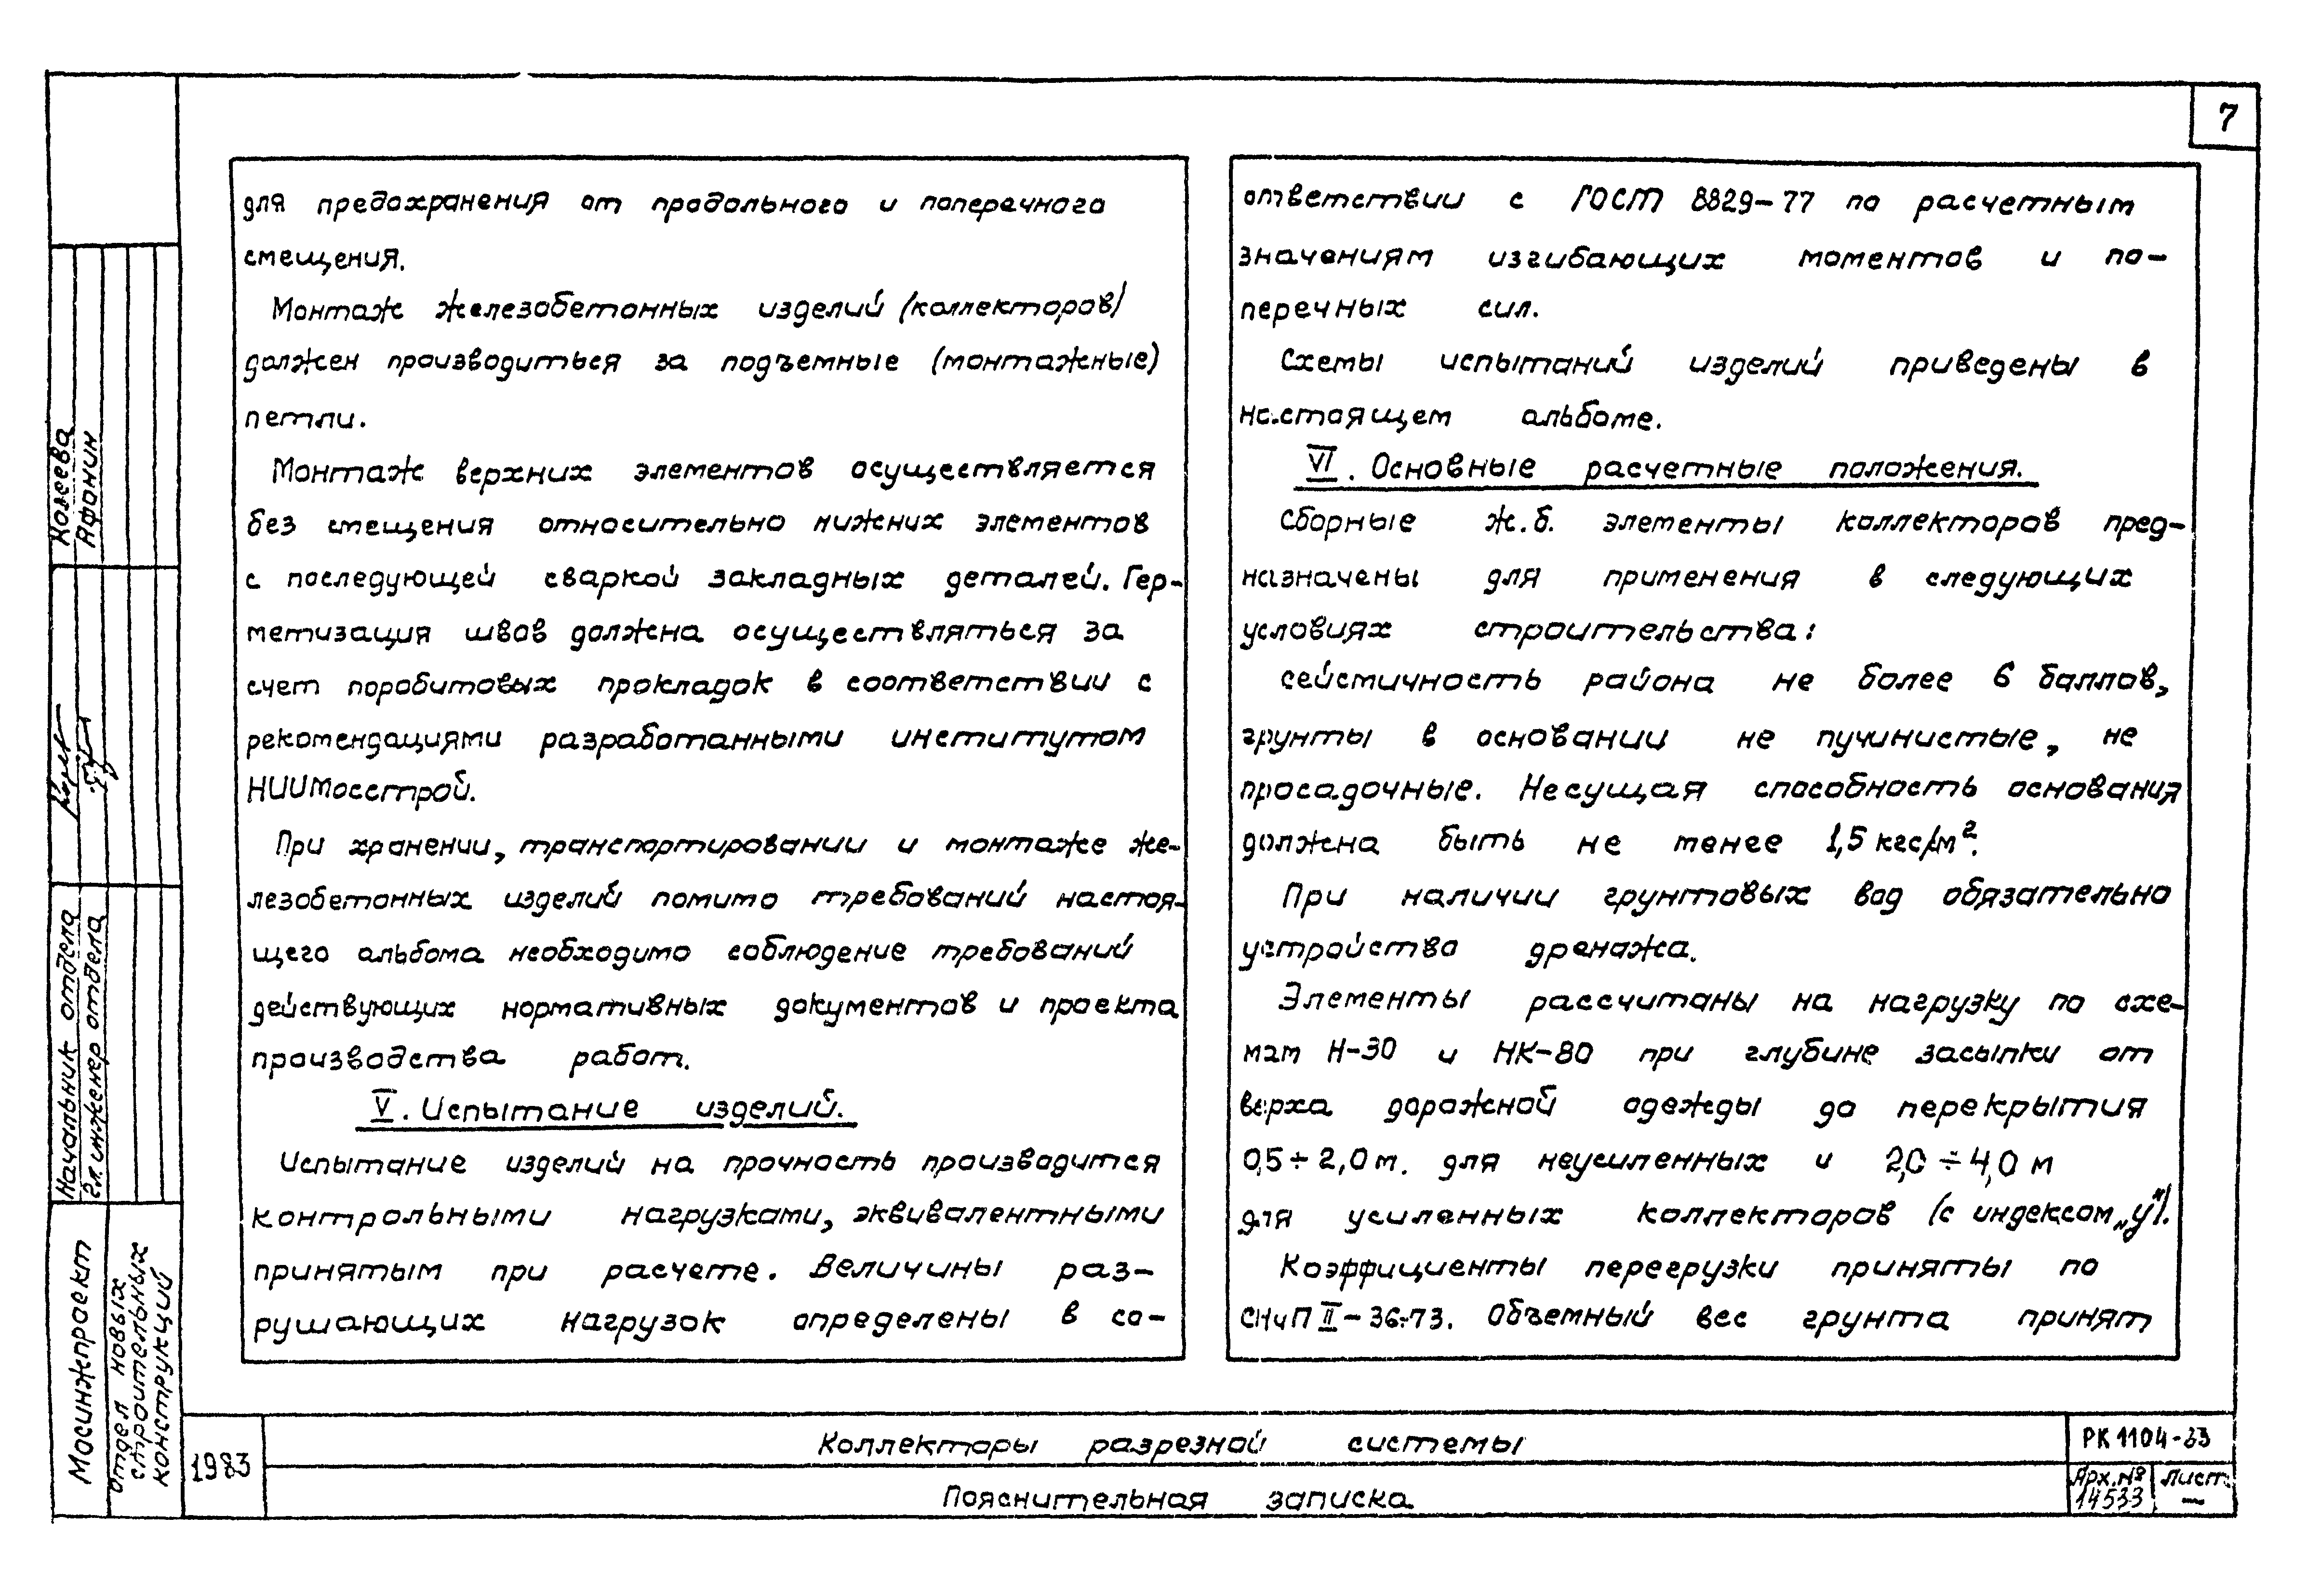 7
для предохранения от продольного и поперечного
смещения.
Монтаж железобетонных изделий (коллекторов)
должен производиться за подъемные (монтажные)
петли.
Монтаж верхних элементов осуществляется
без смещения относительно нижних элементов
с последующей сваркой закладных деталей. Гер-
метизация швов должна осуществляться за
счет поробитовых прокладок в соответствии с
рекомендациями разработанными институтом
НИИМосстрой.
При хранении, транспортировании и монтаже же-
лезобетонных изделий помимо требований настоя-
щего альбома необходимо соблюдение требований
действующих нормативных документов и проекта
производства работ.
V. Испытание изделий.
Испытание изделий на прочность производится
контрольными нагрузками, эквивалентными
принятым при расчете. Величины раз-
рушающих нагрузок определены в со-
ответствии с ГОСТ 8829-77 по расчетным
значениям изгибающих моментов и по-
перечных сил.
Схемы испытаний изделий приведены в
настоящем альбоме.
VI. Основные расчетные положения.
Сборные ж.б. элементы коллекторов пред-
назначены для применения в следующих
условиях строительства:
сейсмичность района не более 6 баллов,
грунты в основании не пучинистые, не
просадочные. Несущая способность основания
должна быть не менее 1,5 кгс/м².
При наличии грунтовых вод обязательно
устройство дренажа.
Элементы рассчитаны на нагрузку по схе-
мам Н-30 и НК-80 при глубине засыпки от
верха дорожной одежды до перекрытия
0,5÷2,0 м. для неусиленных и 2,0÷4,0 м
для усиленных коллекторов (с индексом „у").
Коэффициенты перегрузки приняты по
СНиП II-36-73. Объемный вес грунта принят
Козеева
Афонин
Начальник отдела
Гл. инженер отдела
Мосинжпроект
отдел новых
строительных
конструкций
1983
Коллекторы разрезной системы
Пояснительная записка
РК 1104-83
Арх.№
14533
Лист
—